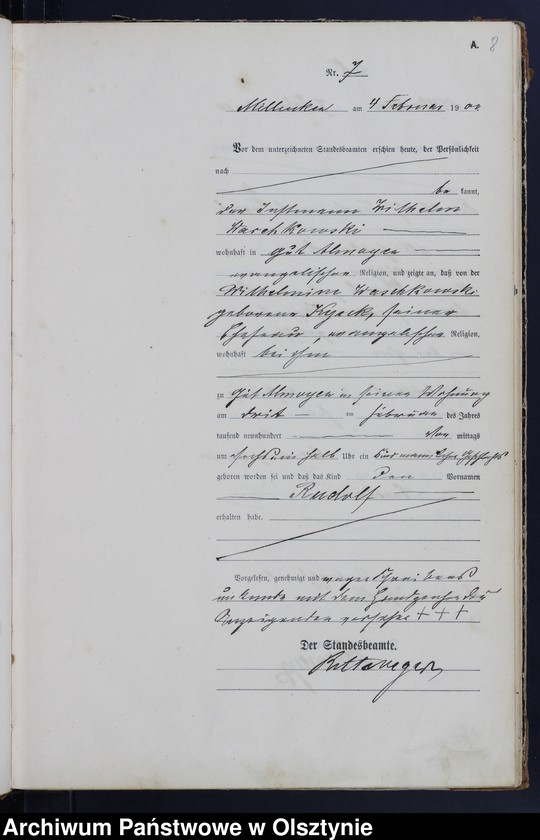 A. 8
Nr. 7
am 4 Februar 1900
Vor dem unterzeichneten Standesbeamten erschien heute, der Persönlichkeit
nach
be kannt,
der Instmann Wilhelm
Waschkowski
wohnhaft in Gut Almoyen
evangelischer Religion, und zeigte an, daß von der
Wilhelmine Waschkowski
geborene Kyeck, seiner
Ehefrau, evangelischer Religion,
wohnhaft bei ihm
zu Gut Almoyen in seiner Wohnung
am drit im Februar des Jahres
tausend neunhundert Vor mittags
um sechs ein halb Uhr ein Kind männlichen Geschlechts
geboren worden sei und daß das Kind den Vornamen
Rudolf
erhalten habe.
Vorgelesen, genehmigt und wegen Schreibens
unkunde mit dem Handzeichen des
Anzeigenden versehen + + +
Der Standesbeamte.
Archiwum Państwowe w Olsztynie